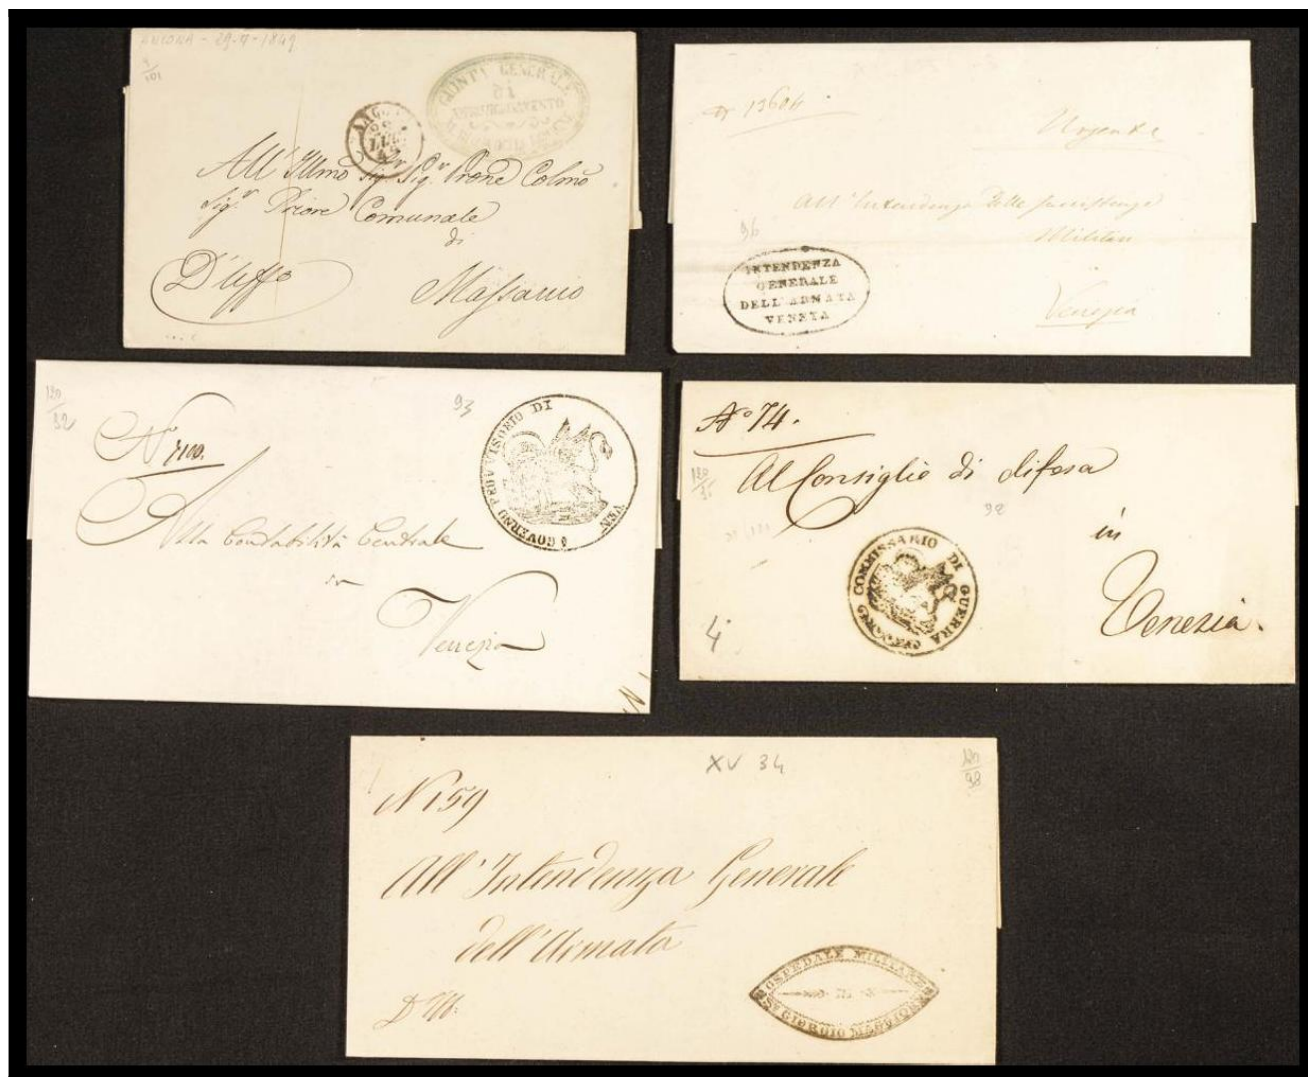 ANCONA - 29-7-1849
9/101
GIUNTA GENERALE
DI
ANCO
LUG
49
All' Illmo Sig. Sig.r Prone Colmo
Sig.r Priore Comunale
di
D'Uffo
Massaccio
N 12604
Urgente
All' Intendenza delle sussistenze
Militari
Venezia
96
INTENDENZA
GENERALE
DELL'ARMATA
VENETA
120/32
93
N 7100.
GOVERNO PROVVISORIO DI VENA
Alla Contabilità Centrale
in
Venezia
N.° 74.
Al Consiglio di difesa
in
Venezia.
92
COMMISSARIO DI GUERRA
4
XV 34
120/98
N 159
All' Intendenza Generale
dell'Armata
OSPEDALE MILITARE
IN
S. GIORGIO MAGGIORE